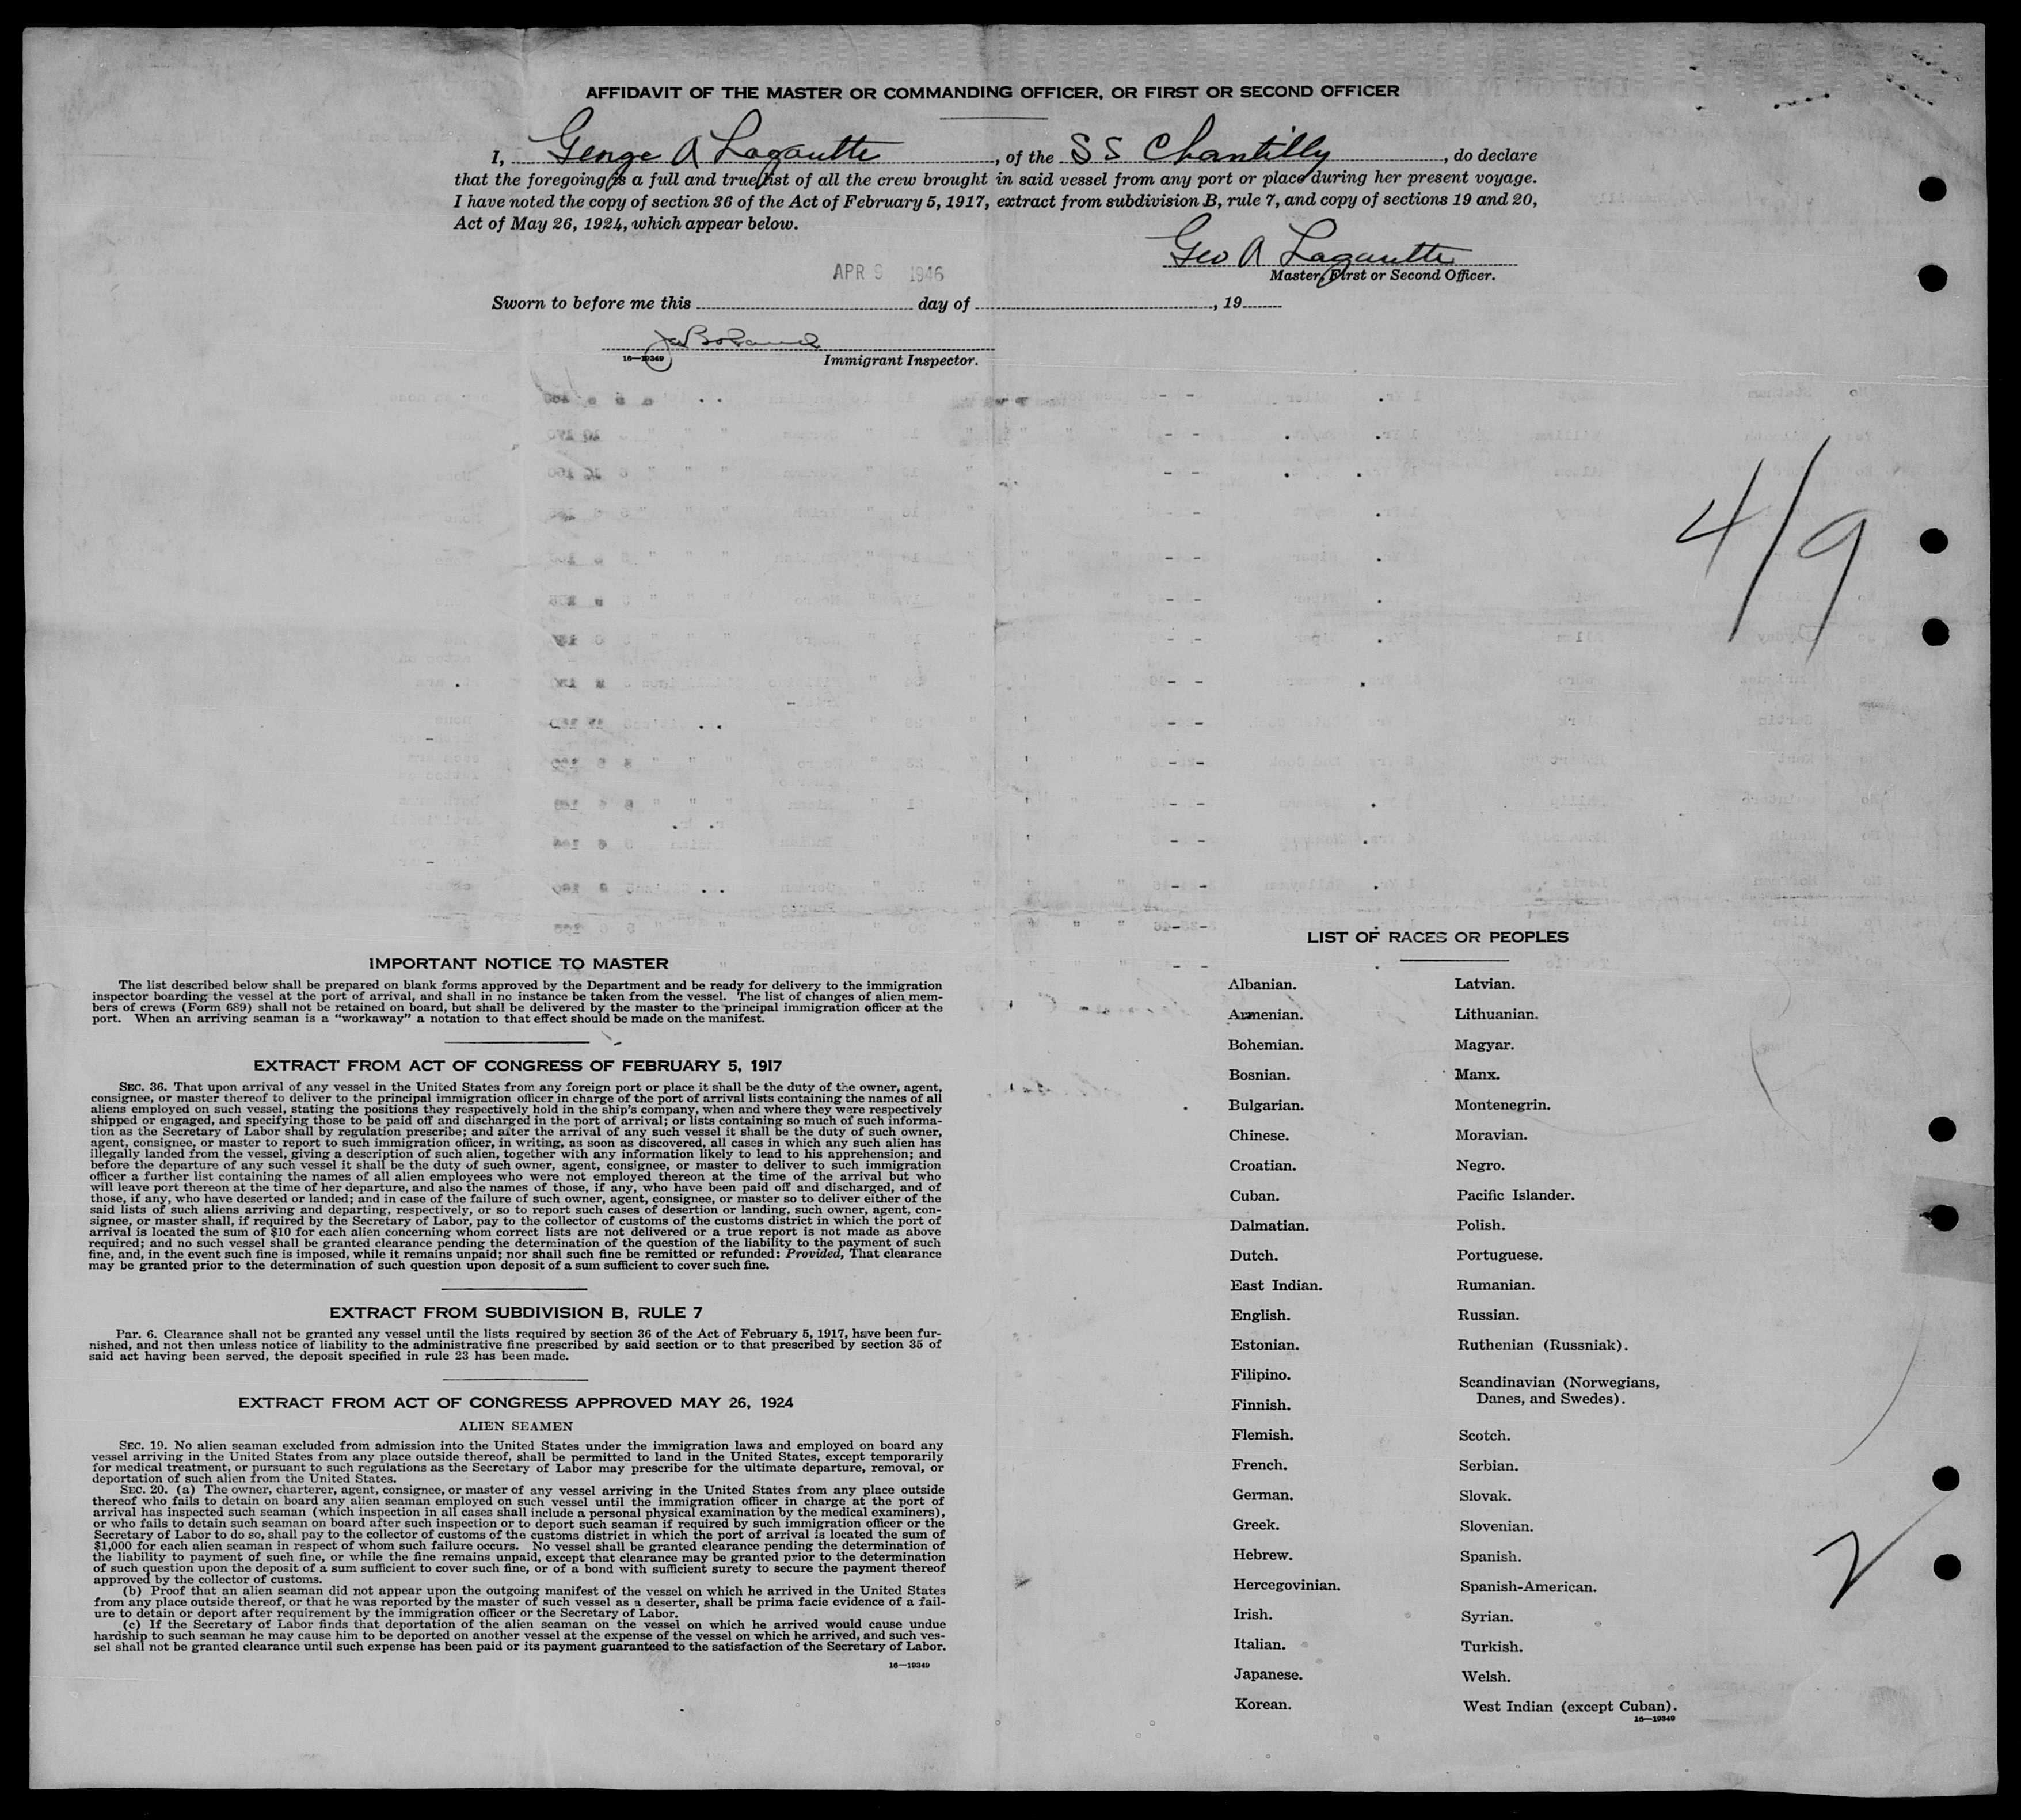 AFFIDAVIT OF THE MASTER OR COMMANDING OFFICER, OR FIRST OR SECOND OFFICER
I, George A Lagautte, of the SS Chantilly, do declare
that the foregoing is a full and true list of all the crew brought in said vessel from any port or place during her present voyage.
I have noted the copy of section 36 of the Act of February 5, 1917, extract from subdivision B, rule 7, and copy of sections 19 and 20,
Act of May 26, 1924, which appear below.
Geo A Lagautte
Master, First or Second Officer.
APR 9 1946
Sworn to before me this day of , 19
16—19349
Immigrant Inspector.
4/9
IMPORTANT NOTICE TO MASTER
The list described below shall be prepared on blank forms approved by the Department and be ready for delivery to the immigration
inspector boarding the vessel at the port of arrival, and shall in no instance be taken from the vessel. The list of changes of alien mem-
bers of crews (Form 689) shall not be retained on board, but shall be delivered by the master to the principal immigration officer at the
port. When an arriving seaman is a “workaway” a notation to that effect should be made on the manifest.
EXTRACT FROM ACT OF CONGRESS OF FEBRUARY 5, 1917
SEC. 36. That upon arrival of any vessel in the United States from any foreign port or place it shall be the duty of the owner, agent,
consignee, or master thereof to deliver to the principal immigration officer in charge of the port of arrival lists containing the names of all
aliens employed on such vessel, stating the positions they respectively hold in the ship's company, when and where they were respectively
shipped or engaged, and specifying those to be paid off and discharged in the port of arrival; or lists containing so much of such informa-
tion as the Secretary of Labor shall by regulation prescribe; and after the arrival of any such vessel it shall be the duty of such owner,
agent, consignee, or master to report to such immigration officer, in writing, as soon as discovered, all cases in which any such alien has
illegally landed from the vessel, giving a description of such alien, together with any information likely to lead to his apprehension; and
before the departure of any such vessel it shall be the duty of such owner, agent, consignee, or master to deliver to such immigration
officer a further list containing the names of all alien employees who were not employed thereon at the time of the arrival but who
will leave port thereon at the time of her departure, and also the names of those, if any, who have been paid off and discharged, and of
those, if any, who have deserted or landed; and in case of the failure of such owner, agent, consignee, or master so to deliver either of the
said lists of such aliens arriving and departing, respectively, or so to report such cases of desertion or landing, such owner, agent, con-
signee, or master shall, if required by the Secretary of Labor, pay to the collector of customs of the customs district in which the port of
arrival is located the sum of $10 for each alien concerning whom correct lists are not delivered or a true report is not made as above
required; and no such vessel shall be granted clearance pending the determination of the question of the liability to the payment of such
fine, and, in the event such fine is imposed, while it remains unpaid; nor shall such fine be remitted or refunded: Provided, That clearance
may be granted prior to the determination of such question upon deposit of a sum sufficient to cover such fine.
EXTRACT FROM SUBDIVISION B, RULE 7
Par. 6. Clearance shall not be granted any vessel until the lists required by section 36 of the Act of February 5, 1917, have been fur-
nished, and not then unless notice of liability to the administrative fine prescribed by said section or to that prescribed by section 35 of
said act having been served, the deposit specified in rule 23 has been made.
EXTRACT FROM ACT OF CONGRESS APPROVED MAY 26, 1924
ALIEN SEAMEN
SEC. 19. No alien seaman excluded from admission into the United States under the immigration laws and employed on board any
vessel arriving in the United States from any place outside thereof, shall be permitted to land in the United States, except temporarily
for medical treatment, or pursuant to such regulations as the Secretary of Labor may prescribe for the ultimate departure, removal, or
deportation of such alien from the United States.
SEC. 20. (a) The owner, charterer, agent, consignee, or master of any vessel arriving in the United States from any place outside
thereof who fails to detain on board any alien seaman employed on such vessel until the immigration officer in charge at the port of
arrival has inspected such seaman (which inspection in all cases shall include a personal physical examination by the medical examiners),
or who fails to detain such seaman on board after such inspection or to deport such seaman if required by such immigration officer or the
Secretary of Labor to do so, shall pay to the collector of customs of the customs district in which the port of arrival is located the sum of
$1,000 for each alien seaman in respect of whom such failure occurs. No vessel shall be granted clearance pending the determination of
the liability to payment of such fine, or while the fine remains unpaid, except that clearance may be granted prior to the determination
of such question upon the deposit of a sum sufficient to cover such fine, or of a bond with sufficient surety to secure the payment thereof
approved by the collector of customs.
(b) Proof that an alien seaman did not appear upon the outgoing manifest of the vessel on which he arrived in the United States
from any place outside thereof, or that he was reported by the master of such vessel as a deserter, shall be prima facie evidence of a fail-
ure to detain or deport after requirement by the immigration officer or the Secretary of Labor.
(c) If the Secretary of Labor finds that deportation of the alien seaman on the vessel on which he arrived would cause undue
hardship to such seaman he may cause him to be deported on another vessel at the expense of the vessel on which he arrived, and such ves-
sel shall not be granted clearance until such expense has been paid or its payment guaranteed to the satisfaction of the Secretary of Labor.
16—19349
LIST OF RACES OR PEOPLES
Albanian.
Armenian.
Bohemian.
Bosnian.
Bulgarian.
Chinese.
Croatian.
Cuban.
Dalmatian.
Dutch.
East Indian.
English.
Estonian.
Filipino.
Finnish.
Flemish.
French.
German.
Greek.
Hebrew.
Hercegovinian.
Irish.
Italian.
Japanese.
Korean.
Latvian.
Lithuanian.
Magyar.
Manx.
Montenegrin.
Moravian.
Negro.
Pacific Islander.
Polish.
Portuguese.
Rumanian.
Russian.
Ruthenian (Russniak).
Scandinavian (Norwegians,
Danes, and Swedes).
Scotch.
Serbian.
Slovak.
Slovenian.
Spanish.
Spanish-American.
Syrian.
Turkish.
Welsh.
West Indian (except Cuban).
16—19349
2